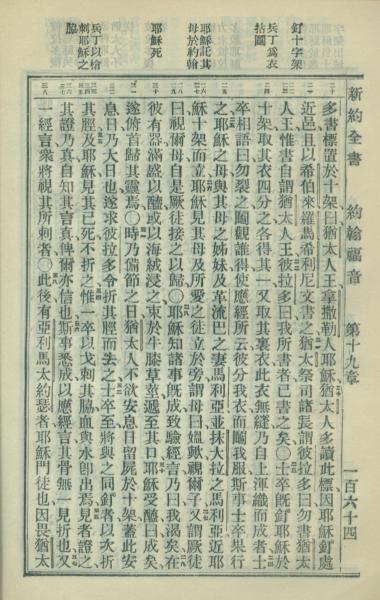 新約全書　約翰福音　第十九章　一百六十四
釘十字架
兵丁爲衣
拈鬮
耶穌託其
母於約翰
耶穌死
兵丁以槍
刺耶穌之
脇
多書標置於十架曰猶太人王拿撒勒人耶穌猶太人多讀此標因耶穌釘處
近邑且以希伯來羅馬希利尼文書之猶太祭司諸長謂彼拉多曰勿書猶太
人王惟書自謂猶太人王彼拉多曰我所書者已書之矣〇士卒旣釘耶穌於
十架取其衣四分之各得其一又取其裏衣此衣無縫乃自上渾織而成者士
卒相語曰勿裂之鬮觀誰得使應經所云彼分我衣而鬮我服斯事士卒果行
之耶穌之母與其母之姊妹及革流巴之妻馬利亞並抹大拉之馬利亞近耶
穌十架而立耶穌見其母及所愛之徒立於旁謂母曰媼歟視爾子又謂厥徒
曰視爾母自是厥徒接之以歸〇耶穌知諸事旣成致驗經言乃曰我渴矣在
彼有器滿盛以醯或以海絨浸之束於牛膝草莖遞至其口耶穌受醯曰成矣
遂俯首歸其靈焉〇時乃備節之日猶太人不欲安息日留屍於十架蓋此安
息日乃大日也遂求彼拉多令折其脛而去之士卒至將與之同釘者以次折
其脛及耶穌見其已死不折之惟一卒以戈刺其脇血與水卽出焉見者證之
其證乃真自知其言真俾爾亦信也斯事悉成以應經言其骨無一見折也又
一經言衆將視其所刺者〇此後有亞利馬太約瑟者耶穌門徒也因畏猶太